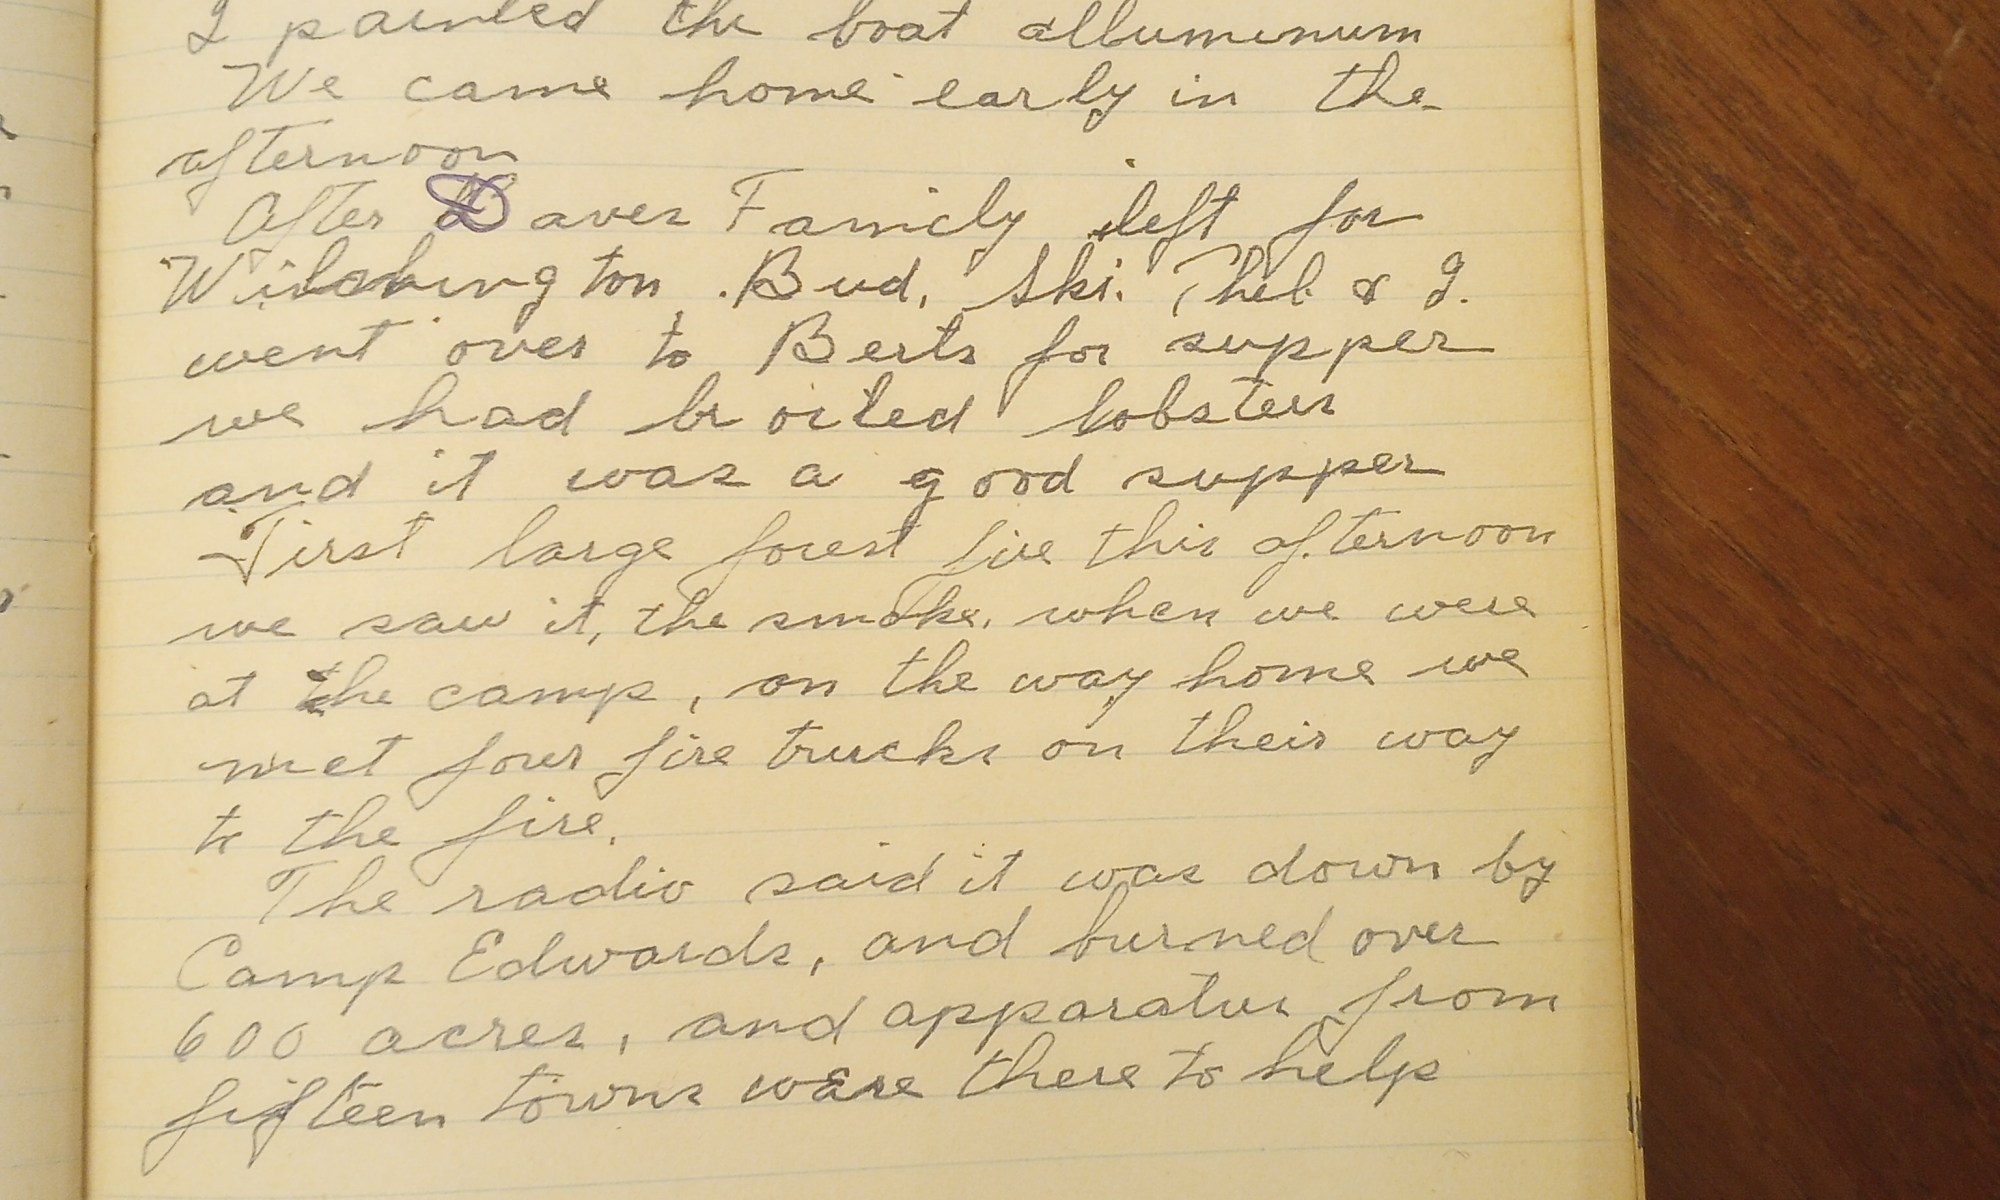 I painted the boat alluminum
We came home early in the
afternoon
After Daves Family left for
Bud, Ski. Pheb. & I.
went over to Berts for supper
we had broiled lobsters
and it was a good supper
First large forest fire this afternoon
we saw it, the smoke, when we were
at the camp, on the way home we
met four fire trucks on their way
to the fire.
The radio said it was down by
Camp Edwards, and burned over
600 acres, and apparatus from
fifteen towns were there to help